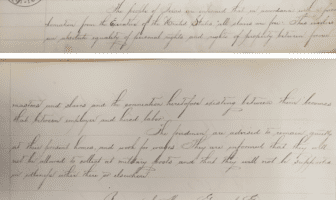 The people of Texas are informed that in accordance with a
Proclamation from the Executive of the United States "all slaves are free." This involves
an absolute equality of personal rights and rights of property between former
masters and slaves and the connection heretofore existing between them becomes
that between employer and hired labor.
The freedmen are advised to remain quietly
at their present homes, and work for wages. They are informed that they will
not be allowed to collect at military posts and that they will not be supported
in idleness either there or elsewhere.